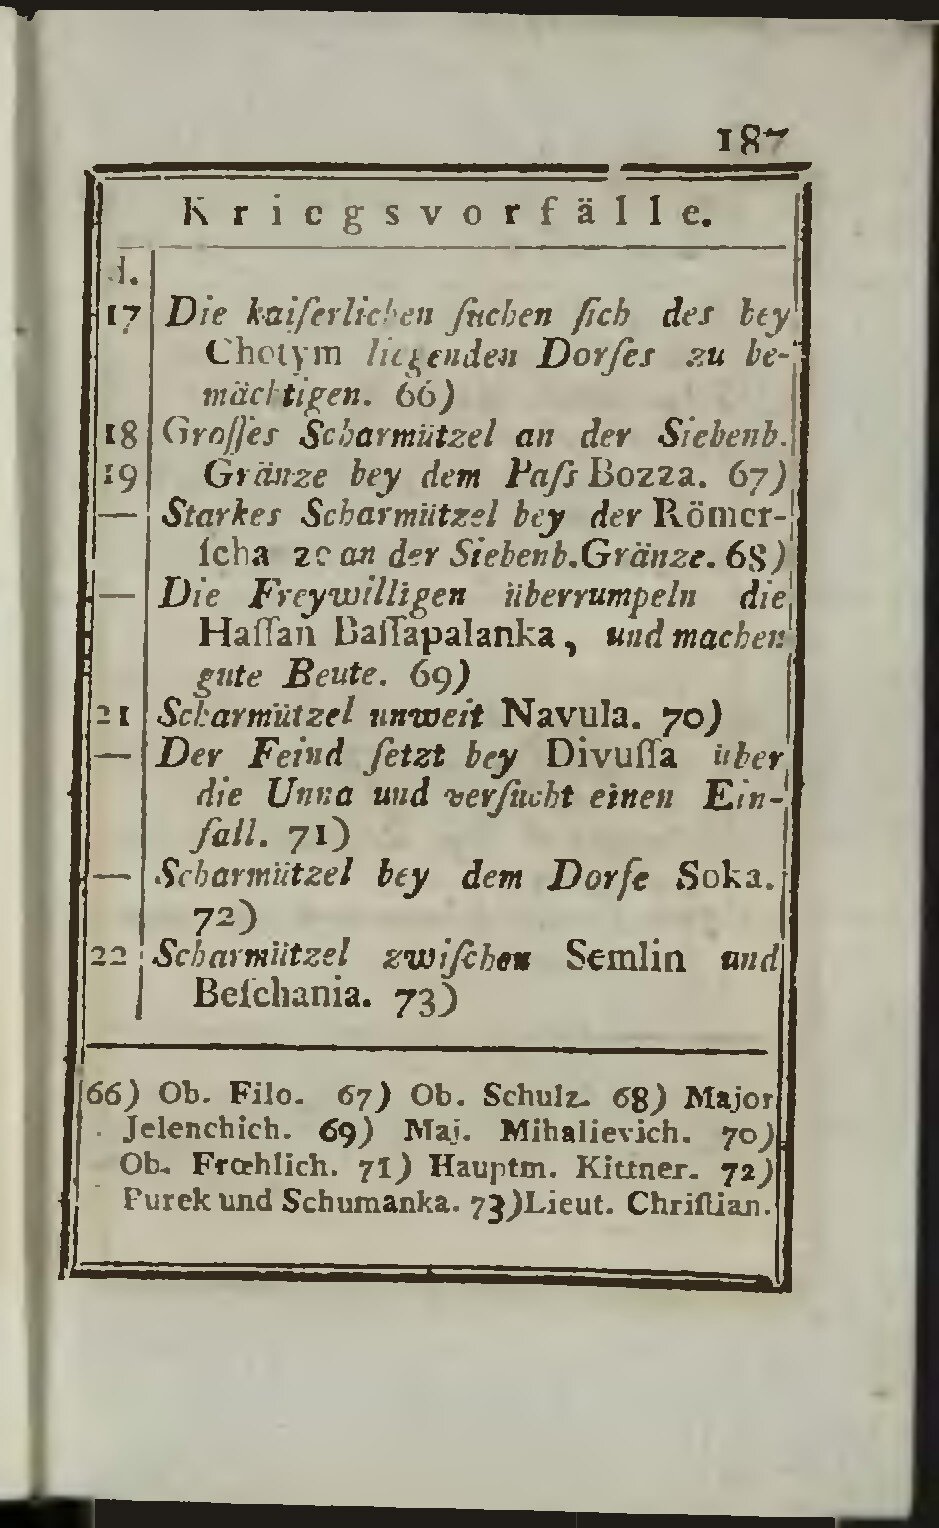 187
Kriegsvorfälle.
d.
17 Die kaiſerlichen ſuchen ſich des bey
Chotym liegenden Dorſes zu be-
mächtigen. 66)
18 Groſſes Scharmützel an der Siebenb.
19 Gränze bey dem Paſs Bozza. 67)
— Starkes Scharmützel bey der Römer-
ſcha ze an der Siebenb. Gränze. 68)
— Die Freywilligen überrumpeln die
Haſſan Baſſapalanka, und machen
gute Beute. 69)
21 Scharmützel unweit Navula. 70)
— Der Feind ſetzt bey Divuſſa über
die Unna und verſucht einen Ein-
fall. 71)
— Scharmützel bey dem Dorfe Soka.
72)
22 Scharmützel zwiſchen Semlin und
Beſchania. 73)
66) Ob. Filo. 67) Ob. Schulz. 68) Major
Jelenchich. 69) Maj. Mihalievich. 70)
Ob. Frœhlich. 71) Hauptm. Kittner. 72)
Purek und Schumanka. 73) Lieut. Chriſtian.